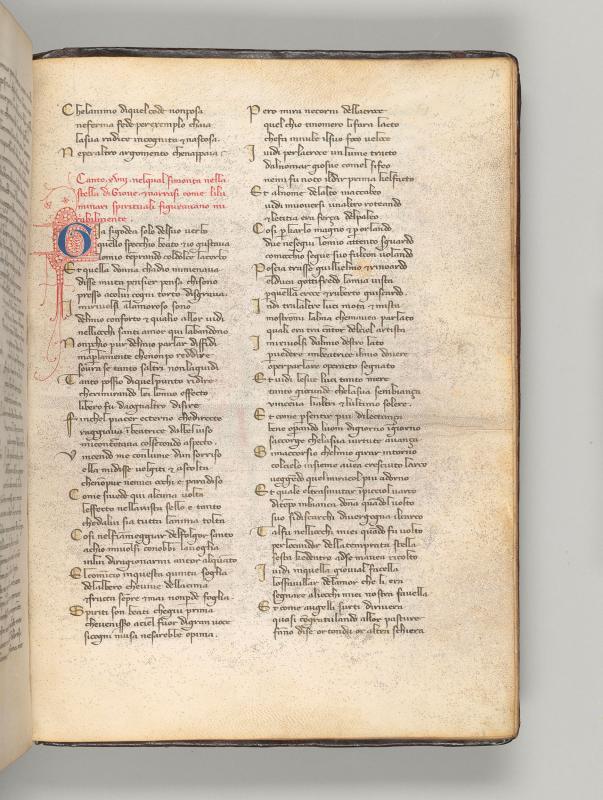 76
Chelanimo diquel code nonposa
neferma fede perexemplo chaia
lasua radice incognita & nascosa.
Ne peraltro argomento chenonpaia
Canto xviij nelqual simonta nella
stella di Gioue & narrasi come li lu
minari spirituali figurauano mi
rabilmente.
Gia sigodea solo delsuo uerbo
quello specchio beato & io gustaua
lomio temprando coldolce lacerbo
Et quella donna chadio mimenaua
disse muta pensier pensa chisono
presso acolui cogni torto disgraua.
I miriuolsi alamoroso sono
delmio conforto & quale allor uidi
nellicchi santi amor qui labandono
Nonperchio pur delmio parlar diffidi
ma perlamente chenonpo reddire
soura se tanto saltri nonlaguidi
Tanto possio diquel punto ridire
cherimirando lei lomio affecto
libero fu daognaltro disire
Finchel piacer ecterno chedirecto
raggiaua inbeatrice dalbel uiso
micontentaua colsecondo aspecto.
Vincendo me conlume dun sorriso
ella midisse uolgiti & ascolta
chenonpur nemiei occhi e paradiso
Come siuede qui alcuna uolta
leffecto nellauista sello e tanto
chedalui sia tutti lanima tolta
Cosi nelfiameggiar delfolgor santo
achio miuolsi conobbi lauoglia
inlui diragionarmi ancor alquanto
El comincio inquesta quinta soglia
delalbero cheuiue dellacima
& fructa sempre & mai nonperde foglia.
Spiriti son beati chegiu prima
cheuenisso aciel fuor digran uoce
sicogni musa nesarebbe opima.
Pero mira necorni dellacroce
quel chio tinomero lifara lacto
chefa innube ilsuo foco ueloce
I uidi perlacroce un lume tracto
dalnomar giosue comel sifeo
nemi fu noto ildir prima chelfacto
Et alnome delalto maccabeo
uidi muouersi unaltro roteando
& letitia era ferza delpaleo
Cosi per karlo magno & per orlando
due nesegui lomio attento sguardo
comocchio segue suo falcon uolando
Poscia trasse guilielmo & rinoardo
elduca gottifredo lamia uista
perquella croce & ruberto guiscardo.
Indi tralaltre luci mota & mista
mostromi lalma chemauea parlato
qual era tra cantor delciel artista
I miriuolsi dalmio destro lato
peruedere inbeatrice ilmio douere
oper parlare operatto segnato
Et uidi lesue luci tanto mere
tanto gioconde chelasua sembianza
uinceua lialtri & lultimo solere.
Et come per sentir piu dilectanza
bene operando luom digiorno in giorno
saccorge chelasua uirtute auanza
Si maccorsio chelmio girar intorno
colcielo insieme auea cresciuto larco
ueggendo quelmiracol piu adorno
Et quale eltrasmutar in picciol uarco
ditempo inbianca donna quandol uolto
suo sidiscarchi diuergogna ilcarco
Tal fu nellicchi miei quando fu uolto
perlocandor della temprata stella
sesta chedentro adse mauea ricolto
I uidi inquella giouial facella
losfauillar delamor che li era
segnare aliocchi miei nostra fauella
Et come augelli surti diriuera
quasi congratulando allor pasture
fanno dise or tondo or altra schiera